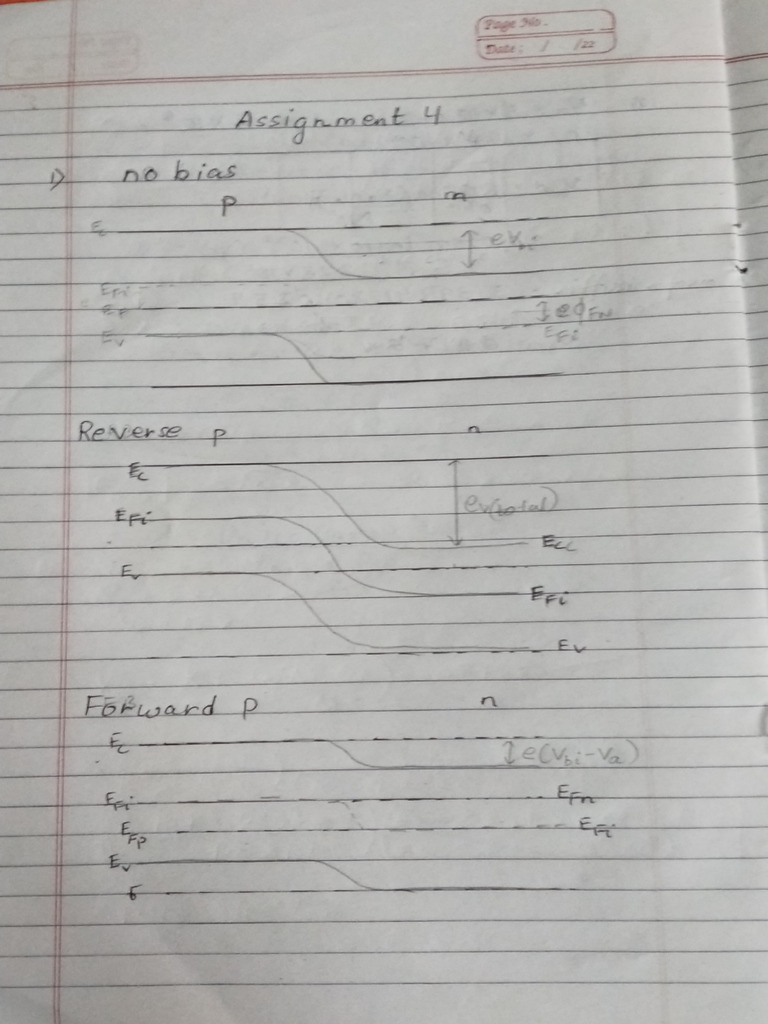 Page No.
Date: / /22
Assignment 4
1) no bias
p n
Ec eVbi
EFi
EF eφFn
Ev EFi
Reverse p n
Ec
EFi eV(total)
Ev
EFi
Ev
Forward p n
Ec e(Vbi-Va)
EFi EFn
EFp EFi
Ev